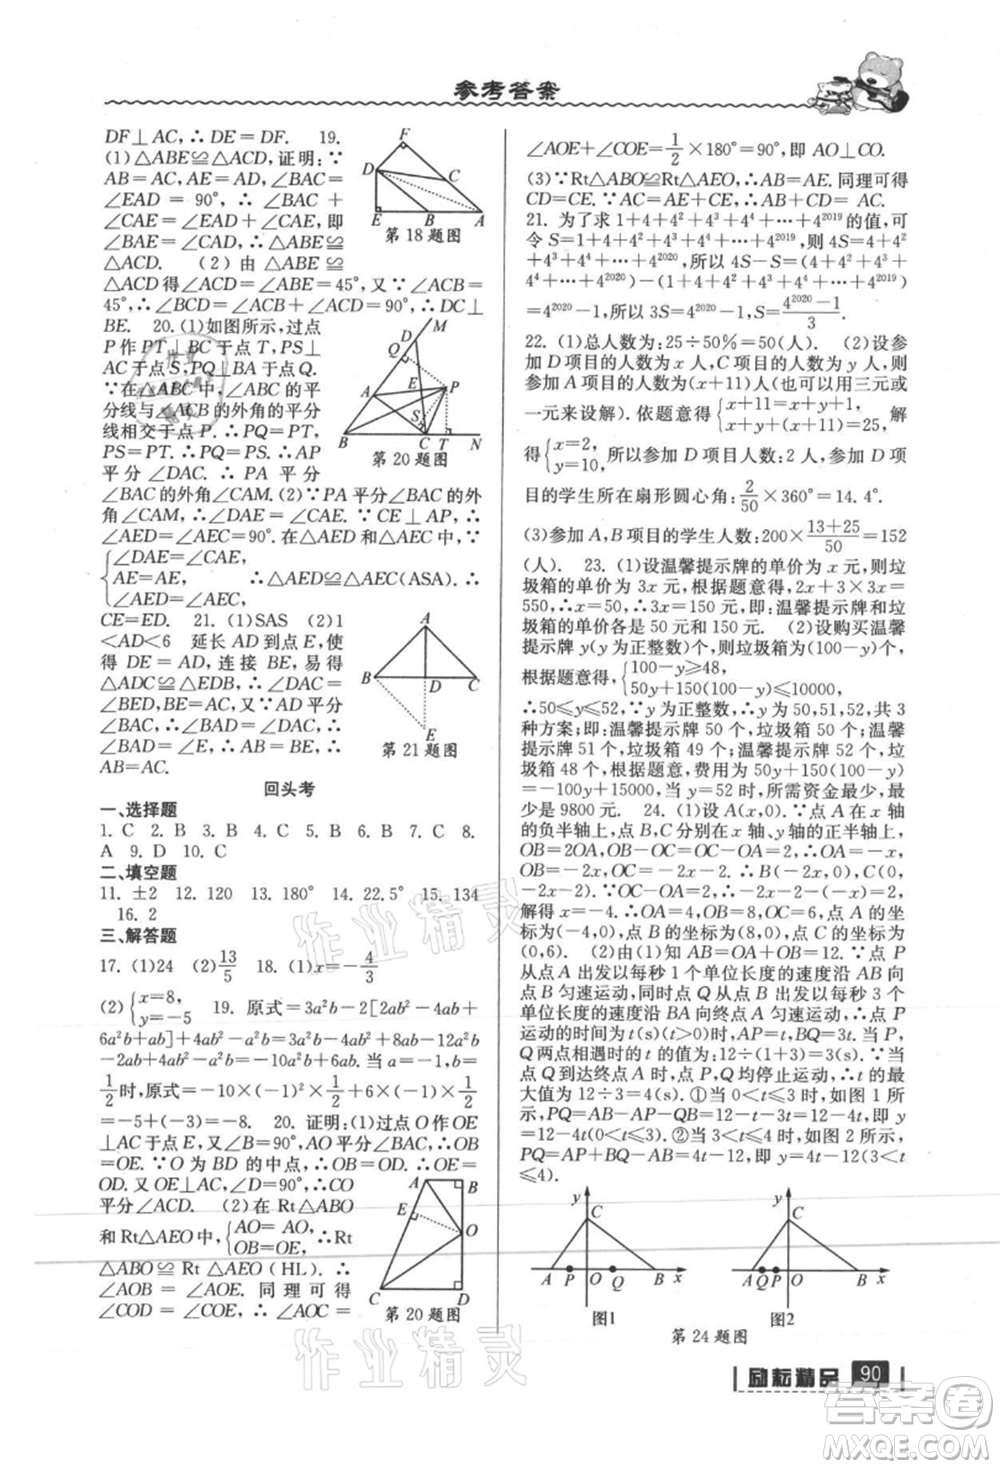 参考答案
DF⊥AC,∴DE=DF. 19.
(1)△ABE≌△ACD,证明:∵
AB=AC,∠BAC=
∠EAD=90°,∠BAC+
∠CAE=∠EAD+∠CAE,即
∠BAE=∠CAD,∴△ABE≌
△ACD. (2)由△ABE≌
△ACD得∠ACD=∠ABE=
45°,又∵∠ACB=
45°,∴∠BCD=∠ACB+∠ACD=90°,∴DC⊥
BE. 20.(1)如图所示,过点
P作PT⊥BC于点T,PS⊥AC
于点S,PQ⊥BA于点Q.
∵在△ABC中,∠ABC的平
分线与∠ACB的外角的平分
线相交于点P,∴PQ=PT,
PS=PT.∴PQ=PS,∴AP
平分∠DAC,∴PA平分
∠BAC的外角∠CAM. (2)∵PA平分∠BAC的外
角∠CAM,∴∠DAE=∠CAE.∵CE⊥AP,∴
∠AED=∠AEC=90°.在△AED和△AEC中,
{∠DAE=∠CAE,
AE=AE,
∠AED=∠AEC ∴△AED≌△AEC(ASA).∴
CE=ED. 21.(1)SAS (2)1
<AD<6 延长AD到点E,使
得DE=AD,连接BE,易得
△ADC≌△EDB,∴∠DAC=
∠BED,BE=AC,又∵AD平分
∠BAC,∴∠BAD=∠DAC,∴
∠BAD=∠BED,∴AB=BE,∴
AB=AC.
F
D
C
E
B
A
第18题图
M
D
Q
A
E
P
S
B
C
T
N
第20题图
A
B
D
C
E
第21题图
回头考
一、选择题
1. C 2. B 3. B 4. C 5. B 6. B 7. C 8.
A 9. D 10. C
二、填空题
11. ±2 12. 120 13. 180° 14. 22.5° 15. 134
16. 2
三、解答题
17. (1)24 (2)13/5 18. (1)x=-4/3
(2){x=8,
y=-5 19. 原式=3a²b-2[2ab²-4ab+
6a²b+ab]+4ab²=3a²b-4ab²+8ab-12a²b
-2ab+4ab²=-9a²b+6ab.当a=-1,b=
1/2时,原式=-10×(-1)²×1/2+6×(-1)×1/2
=-5+(-3)=-8. 20. 证明:(1)过点O作OE
⊥AC于点E,又∠B=90°,AO平分∠BAC,∴OB
=OE.∵O为BD的中点,∴OB=OD,∴OE=
OD.又∵OE⊥AC,∠D=90°,∴CO
平分∠ACD. (2)在Rt△ABO
和Rt△AEO中,{AO=AO,
OB=OE,∴Rt
△ABO≌Rt△AEO(HL).∴
∠AOB=∠AOE.同理可得
∠COD=∠COE,∴∠AOC=
A
B
E
O
C
D
第20题图
∠AOE+∠COE=1/2×180°=90°,即AO⊥CO.
(3)∵Rt△ABO≌Rt△AEO,∴AB=AE.同理可得
CD=CE.∵AC=AE+CE,∴AB+CD=AC.
21. 为了求1+4+4²+4³+4⁴+⋯+4²⁰¹⁹的值,可
令S=1+4+4²+4³+4⁴+⋯+4²⁰¹⁹,则4S=4+4²
+4³+4⁴+⋯+4²⁰²⁰,所以4S-S=(4+4²+4³+4⁴
+⋯+4²⁰²⁰)-(1+4+4²+4³+4⁴+⋯+4²⁰¹⁹)
=4²⁰²⁰-1,所以3S=4²⁰²⁰-1,S=(4²⁰²⁰-1)/3.
22. (1)总人数为:25÷50%=50(人). (2)设参
加D项目的人数为x人,C项目的人数为y人,则参
加A项目的人数为(x+y+1)人(也可用三元或者
一元来设解).依题意得{x+11=x+y+1,
y+(x+y+1)+x+25=50. 解
得{x=2,
y=10. 所以参加D项目人数:2人,参加D项
目的学生所在扇形圆心角:2/50×360°=14.4°.
(3)参加A,B项目的学生人数:200×(13+25)/50=152
(人). 23. (1)设温馨提示牌的单价为x元,则垃
圾箱的单价为3x元,根据题意得,2x+3×3x=
550,∴x=50,∴3x=150元,即:温馨提示牌和垃
圾箱的单价各是50元和150元. (2)设购买温馨
提示牌y(y为正整数)个,则垃圾箱为(100-y)个,
根据题意得{100-y≥48,
50y+150(100-y)≤10000,
∴50≤y≤52,∵y为正整数,∴y为50,51,52,共3
种方案;即:温馨提示牌50个,垃圾箱50个;温馨
提示牌51个,垃圾箱49个;温馨提示牌52个,垃圾
箱48个,根据题意,费用为50y+150(100-y)
=-100y+15000,当y=52时,所需资金最少,最
少是9800元. 24. (1)设A(x,0).∵点A在x轴
的负半轴上,点B,C分别在x轴、y轴的正半轴上,
OB=2OA,OB-OC=OA=2,∴B(-2x,0),C(0,
-2x-2).∵OC-OA=2,∴-2x-2-(-x)=2,
解得x=-4,∴OA=4,OB=8,OC=6,∴点A的坐标
为(-4,0),点B的坐标为(8,0),点C的坐标为
(0,6). (2)由(1)知:AB=OA+OB=12.∵点P
从点A出发以每秒1个单位长度的速度沿AB向终
点B匀速运动,同时点Q从点B出发以每秒3个
单位长度的速度沿BA向终点A匀速运动,点P
运动的时间为t(s)(t>0),AP=t,BQ=3t.当P,
Q两点相遇时的t的值为:12÷(1+3)=3.∵P,Q
两点到达终点后,P,Q均停止运动,∴此时t的最
大值为12÷3=4.①当0<t≤3时,如图1所
示,PQ=PA-BQ=AB=12-t-3t=12-4t,即y
=12-4t(0<t≤3).②当3<t≤4时,如图2所示,
PQ=PA+BQ-AB=t+3t-12,即y=4t-12(3<t
≤4).
y
C
A
P
O
Q
B
x
图1
y
C
A
Q
P
O
B
x
图2
第24题图
励耘精品 90
作业精灵
作业精灵
答案圈
MXQE.COM